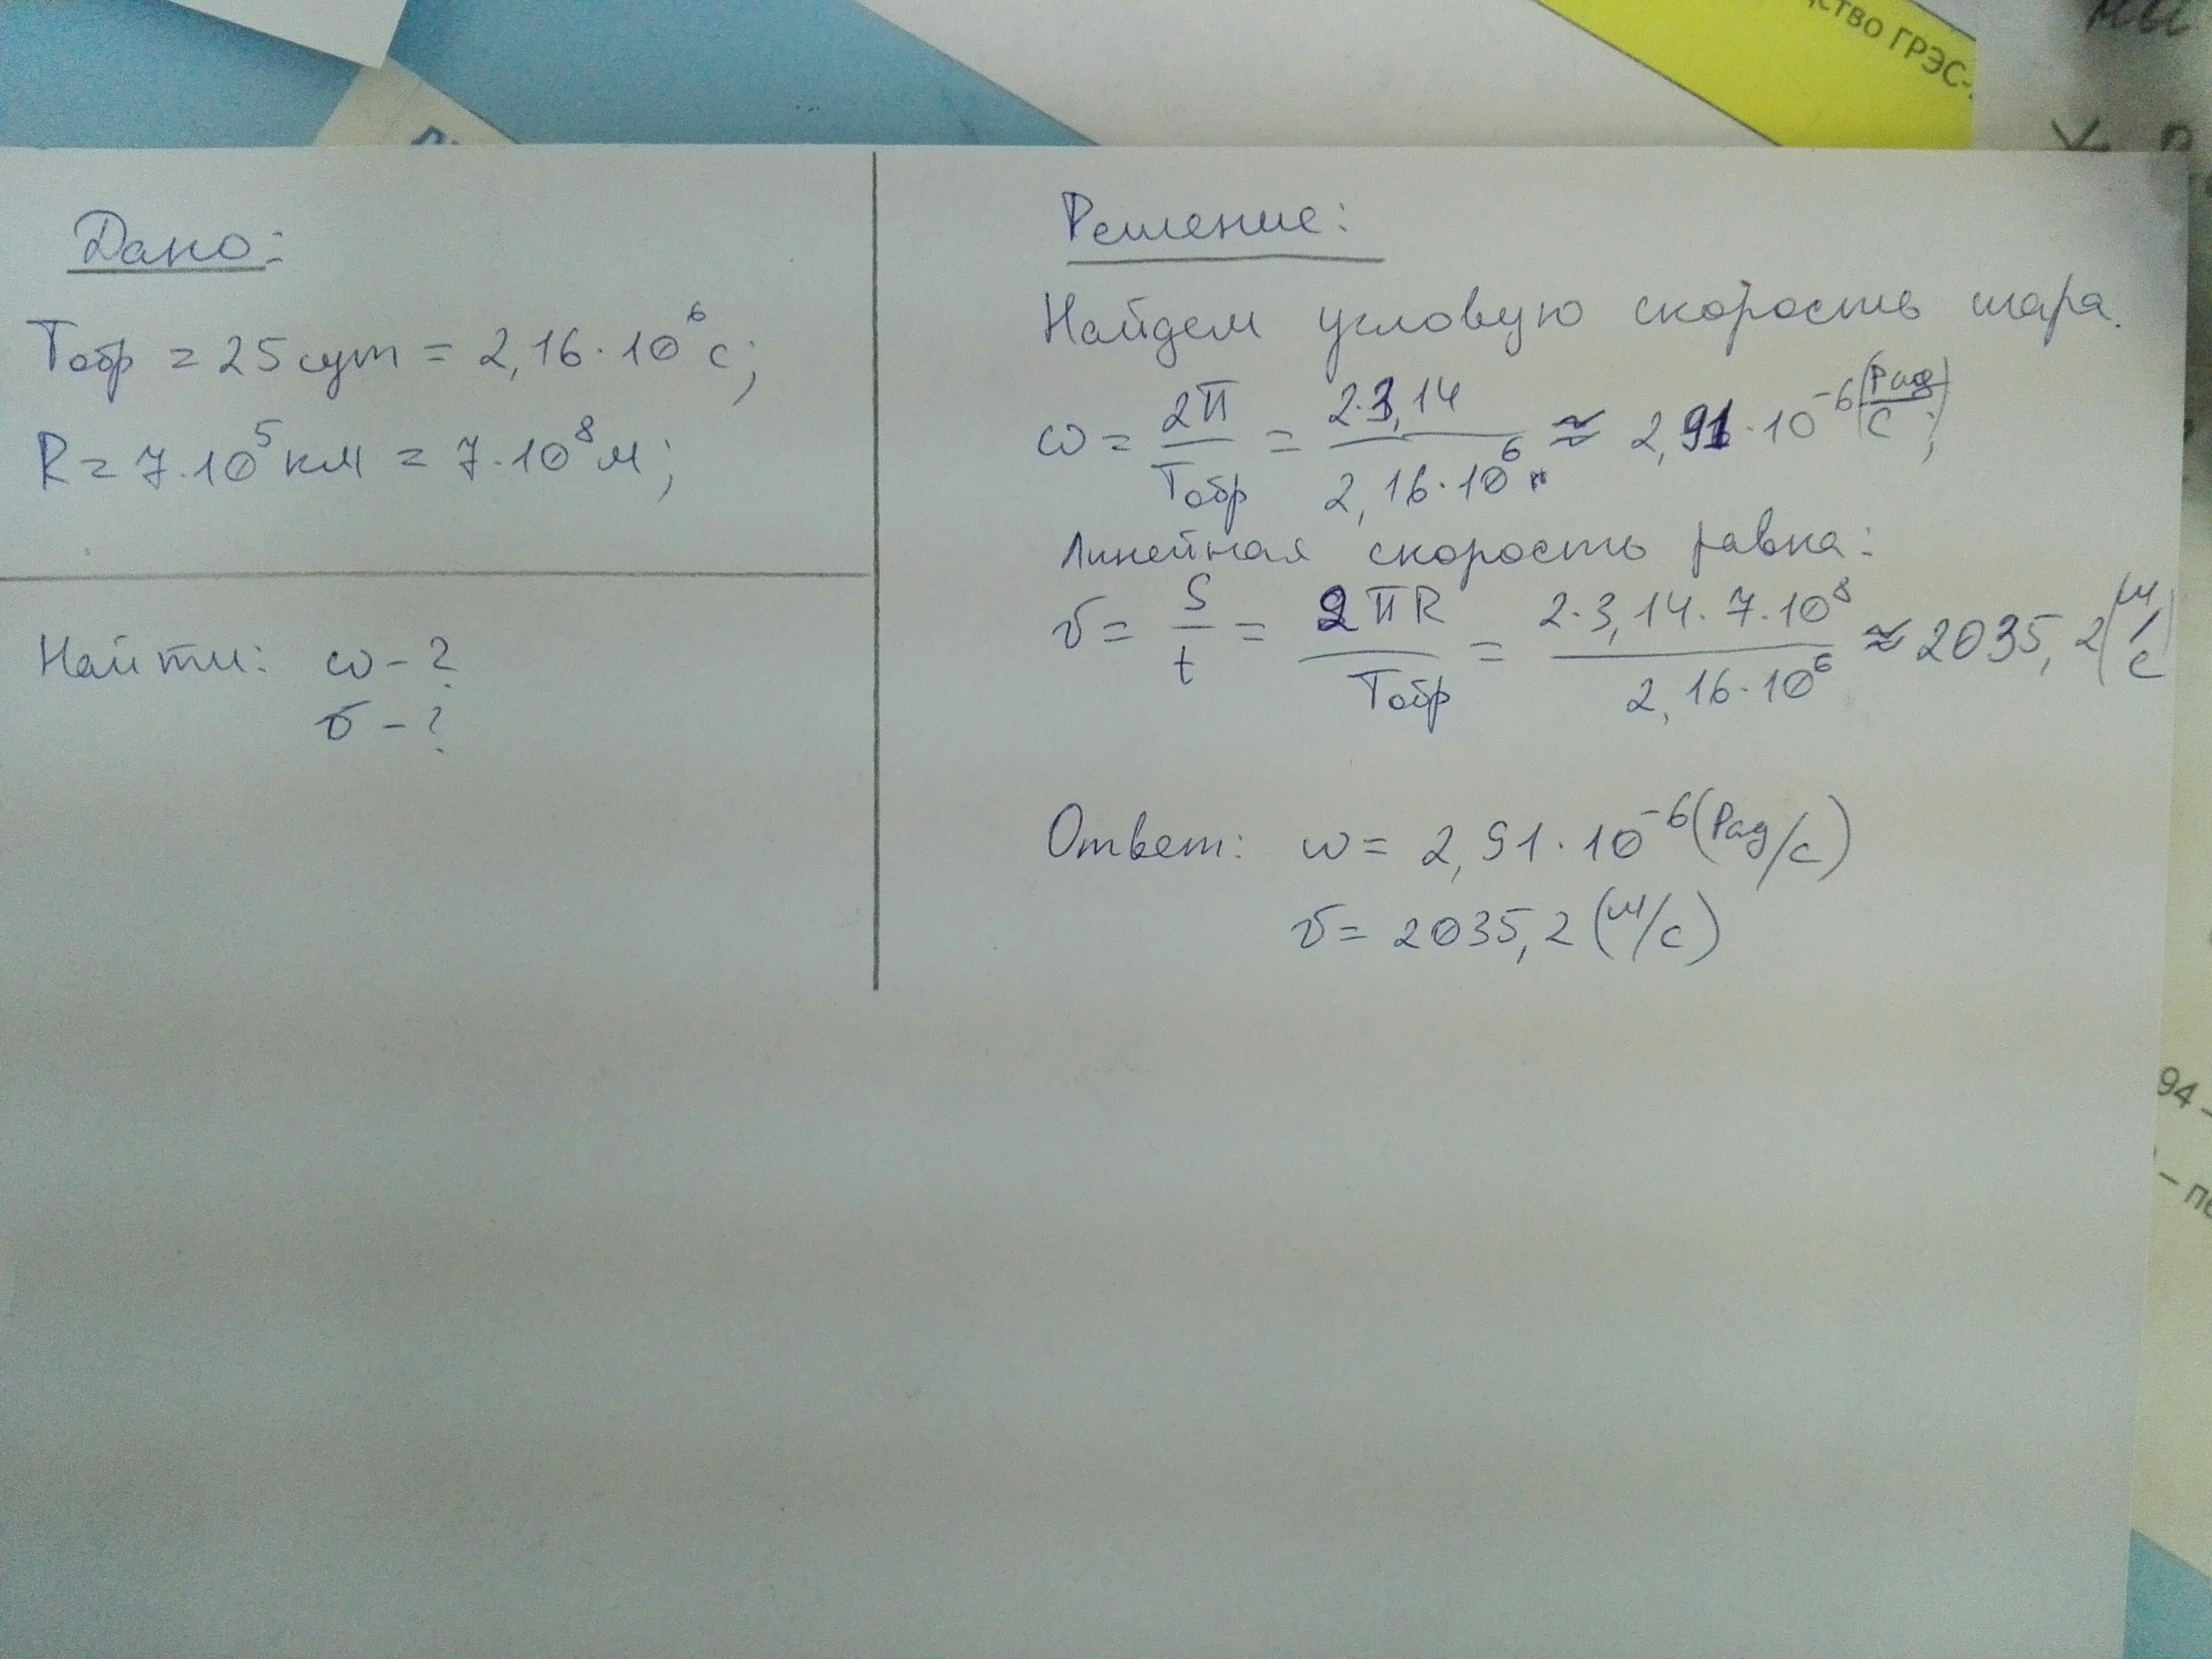 ство ГРЭС-
Дано:
Tобр = 25 сут = 2,16·10⁶ с;
R = 7·10⁵ км = 7·10⁸ м;
Найти: ω - ?
υ - ?
Решение:
Найдем угловую скорость шара.
ω = 2π/Tобр = 2·3,14/2,16·10⁶ ≈ 2,91·10⁻⁶ (Рад/с);
Линейная скорость равна:
υ = S/t = 2πR/Tобр = 2·3,14·7·10⁸/2,16·10⁶ ≈ 2035,2 (м/с)
Ответ: ω = 2,91·10⁻⁶ (Рад/с)
υ = 2035,2 (м/с)
94 –